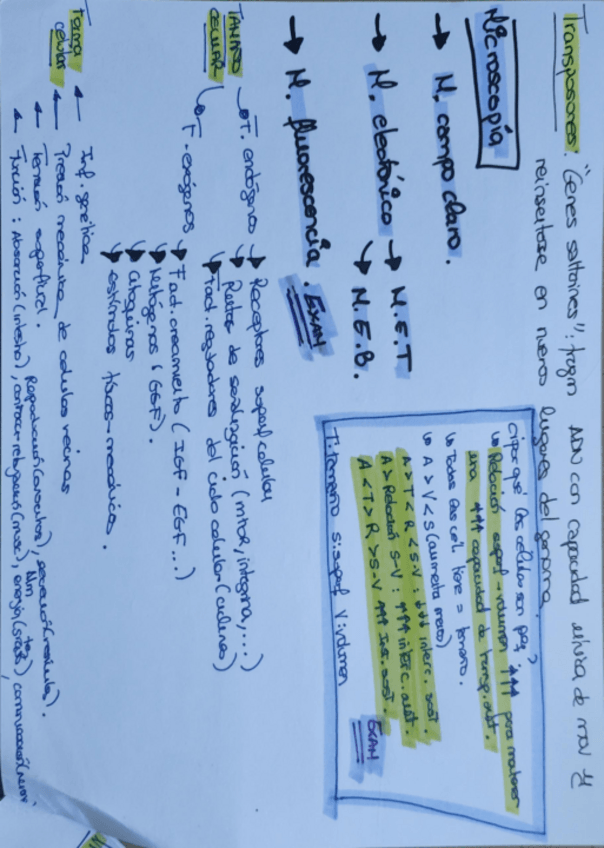 Transposones: "Genes saltarines": fragm ADN con capacidad de mov y
reinsertarse en nuevos lugares del genoma
Microscopía
→ M. campo claro.
→ M. electrónico → M.E.T
→ M.E.B.
→ M. fluorescencia. EXAM
¿por qué las células son peq?
↳ Relación superf-volumen ↑↑↑ para mantener
una ↑↑↑ capacidad de transp.
↳ Todas las cél. tiene = tamaño.
↳ A > V < S (aumenta menos)
A > T < R < S-V : ↓↓↓ interc. sust.
A > Relación S-V : ↑↑↑ interc. sust.
A < T > R > S-V ↑↑↑ Int. sust.
T: tamaño S: superf V: volumen
EXAM
TAMAÑO
CELULAR
↳ F. endógenos → Receptores superf celular
→ Rutas de señalización (mTOR, integrina, ...)
→ Fact. reguladores del ciclo celular (ciclinas)
↳ F. exógenos → Fact. crecimiento (IGF - EGF...)
→ Mitógenos (GSF).
→ Citoquinas
→ estímulos físicos-mecánicos.
Forma
celular
← Inf. genética
← Presión mecánica de células vecinas
← Tensión superficial.
← Función: Absorción (intestino), contracc-relajación (musc),